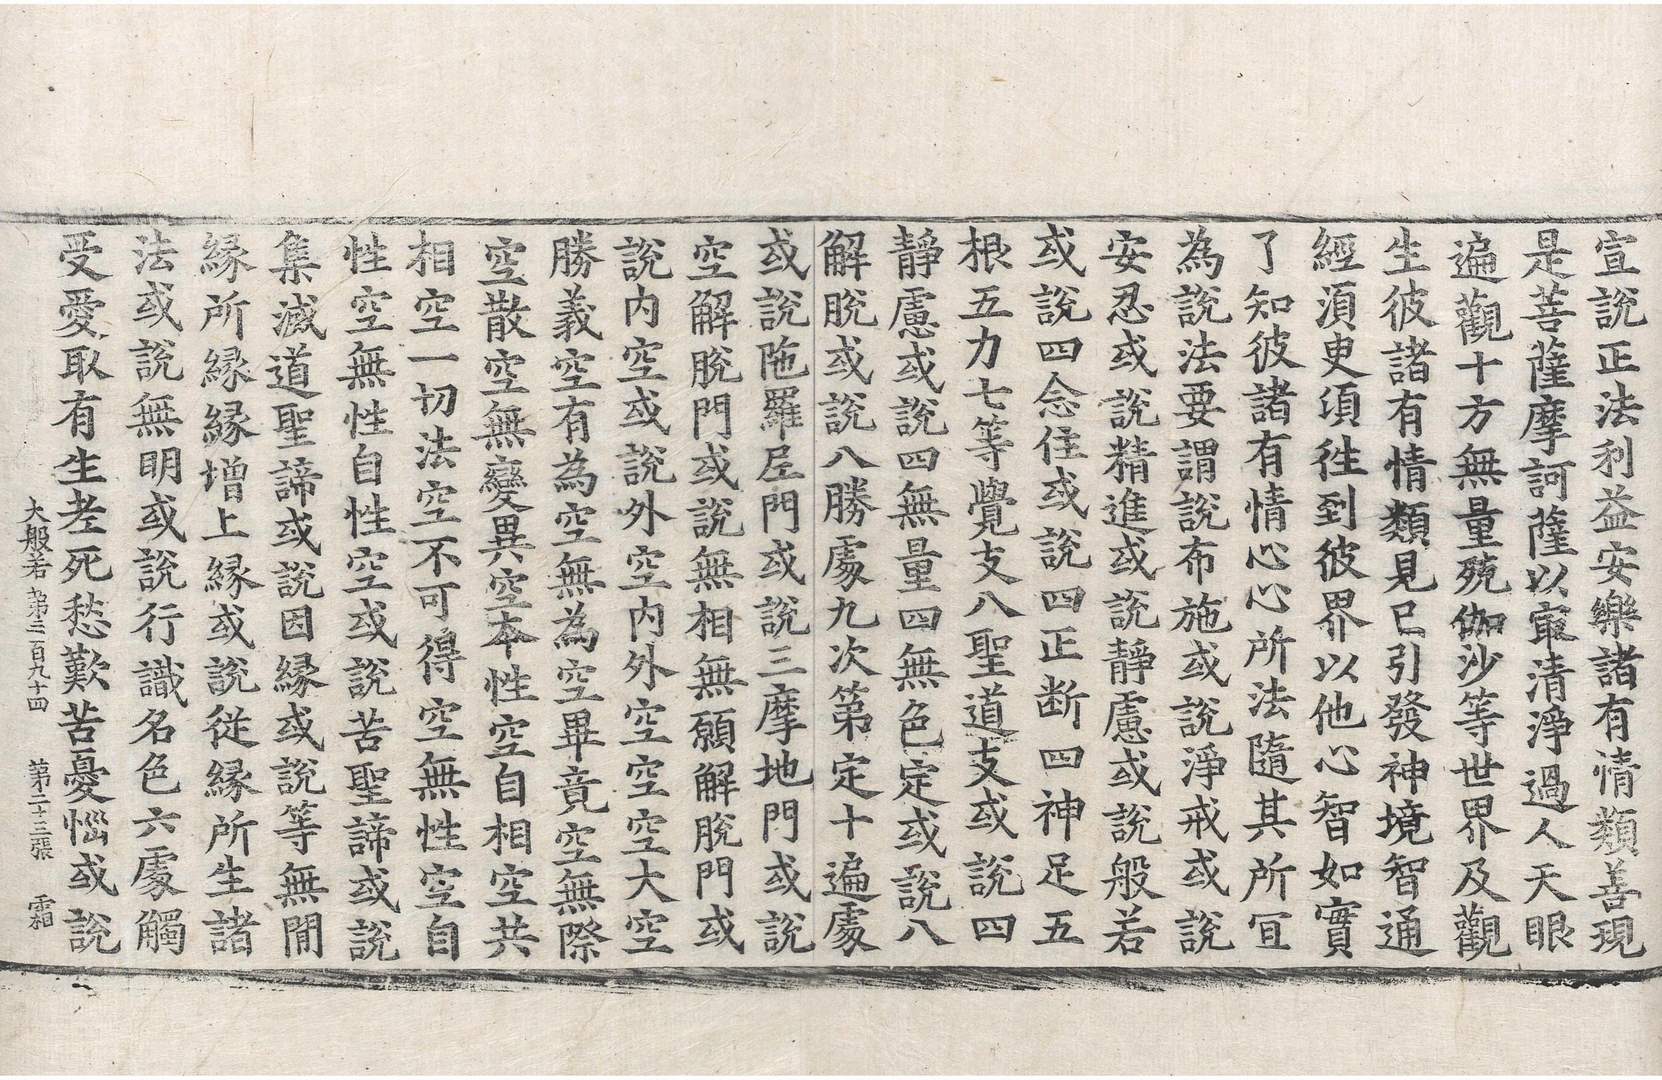 宣說正法利益安樂諸有情類善現
是菩薩摩訶薩以㝡清淨過人天眼
遍觀十方無量殑伽沙等世界及觀
生彼諸有情類見已引發神境智通
經須臾須徃到彼界以他心智如實
了知彼諸有情心心所法隨其所冝
為說法要謂說布施或說淨戒或說
安忍或說精進或說靜慮或說般若
或說四念住或說四正断四神足五
根五力七等覺支八聖道支或說四
靜慮或說四無量四無色定或說八
解脫或說八勝處九次第定十遍處
或說陁羅尼門或說三摩地門或說
空解脫門或說無相無願解脫門或
說内空或說外空内外空空空大空
勝義空有為空無為空畢竟空無際
空散空無變異空本性空自相空共
相空一切法空不可得空無性空自
性空無性自性空或說苦聖諦或說
集滅道聖諦或說因縁或說等無間
縁所縁縁增上縁或說從縁所生諸
法或說無明或說行識名色六處觸
受愛取有生老死愁歎苦憂惱或說
大般若 第三百九十四 第二十三張 霜